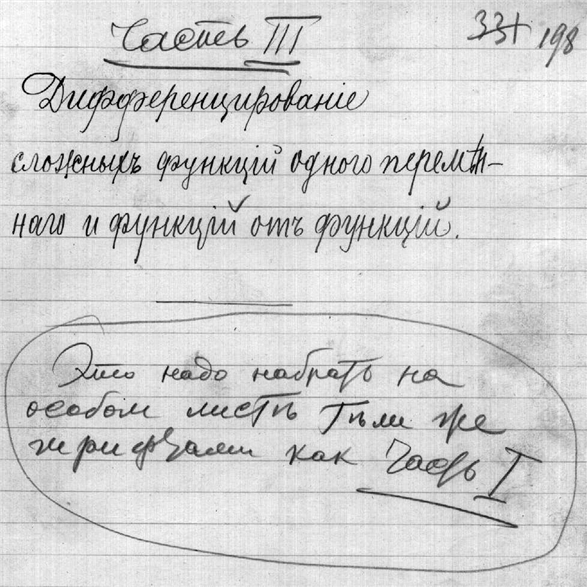 Часть III
331 198
Дифференцированіе
сложныхъ функцій одного перемѣн-
наго и функцій отъ функцій.
Это надо набрать на
особом листѣ тѣми же
шрифтами как Часть I